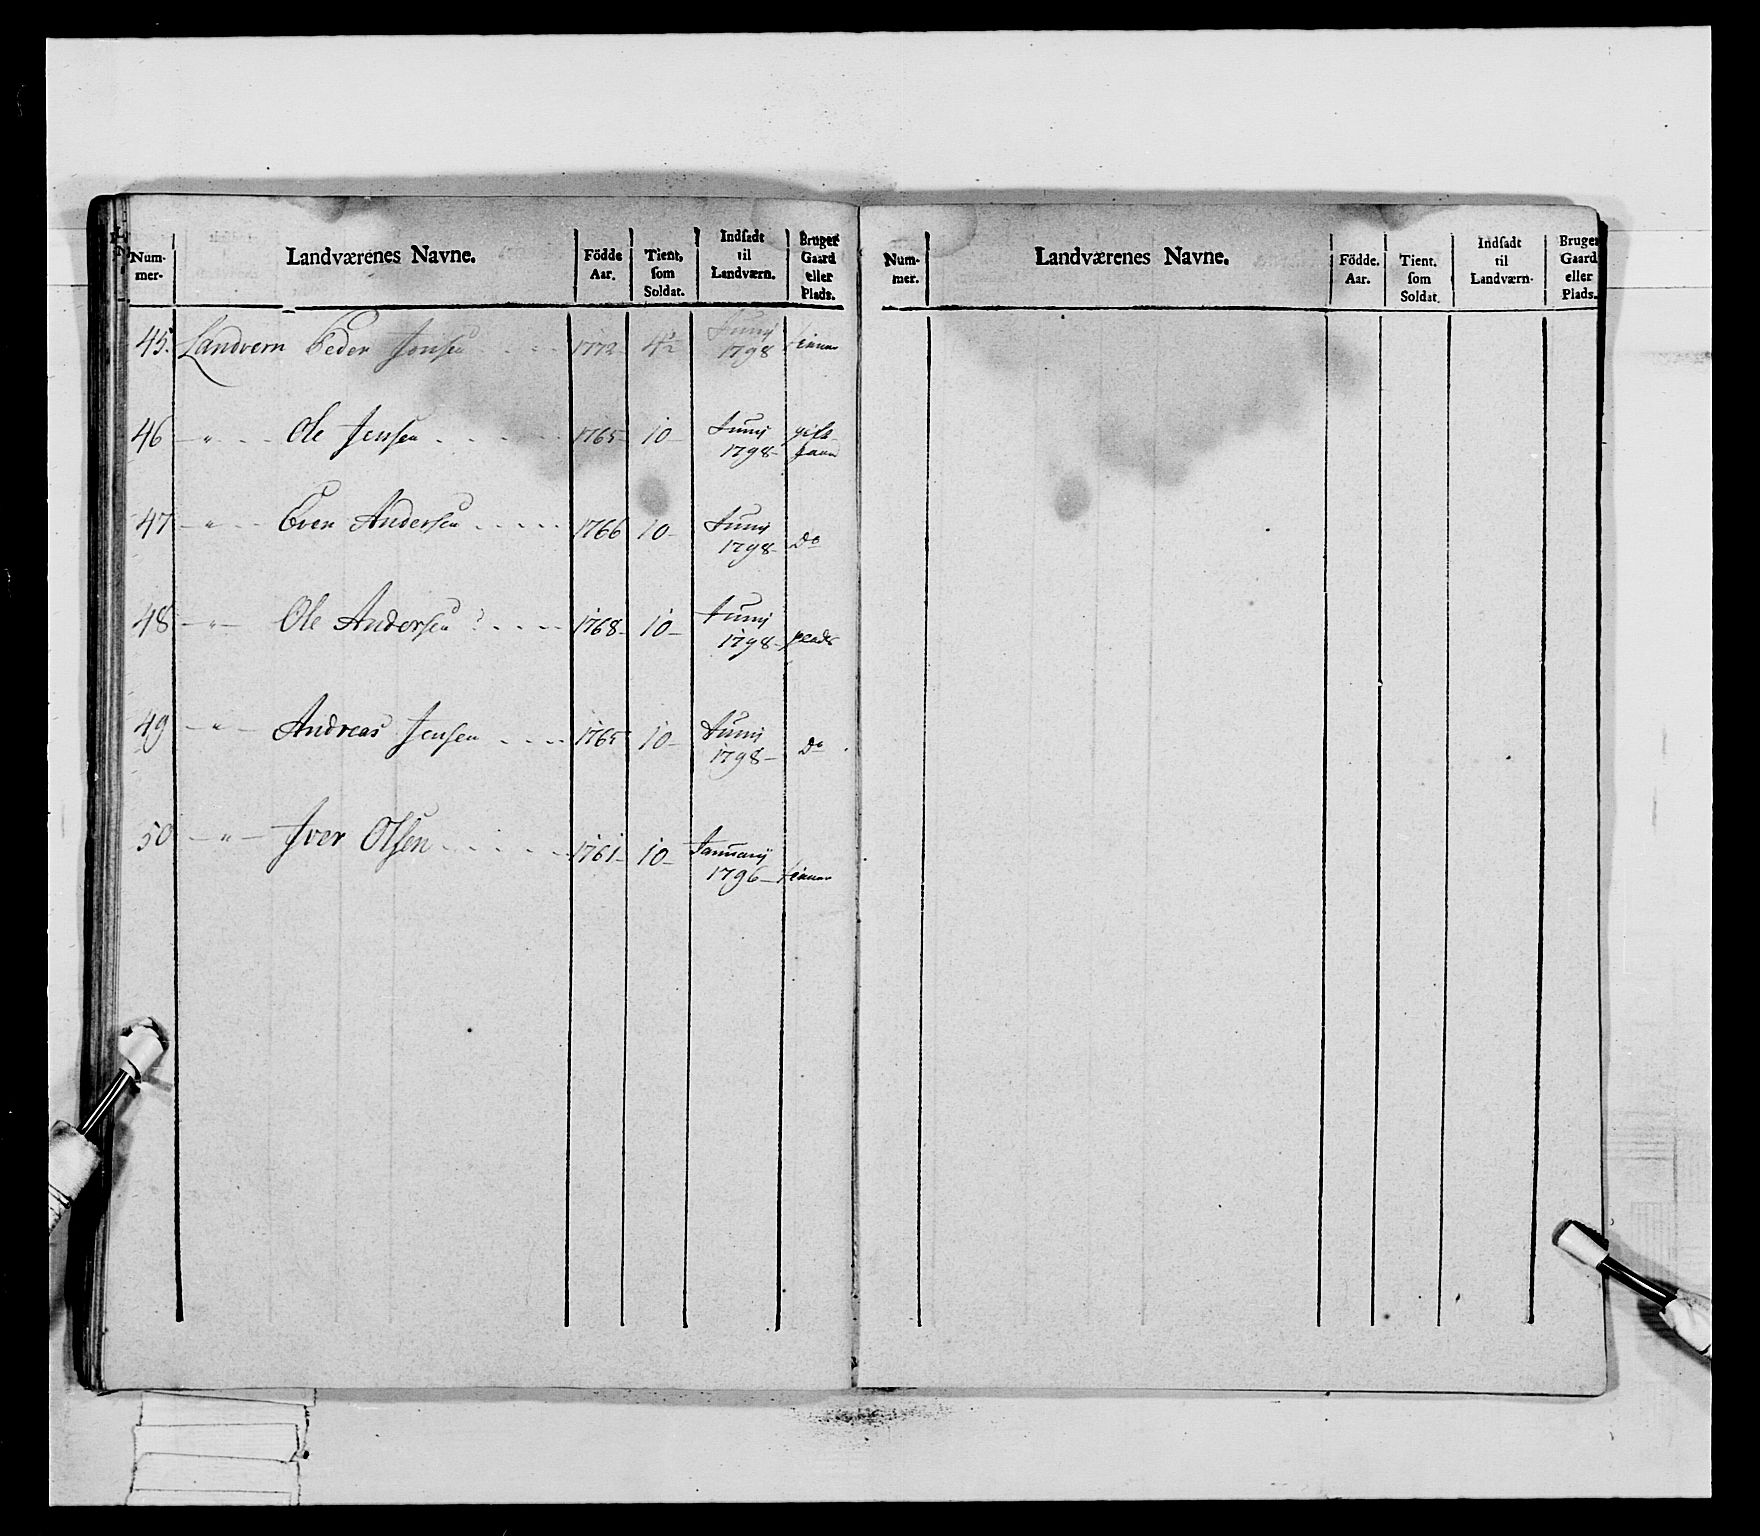 Num- Landværenes Navne. Födde Tient, Indsadt Bruger
mer. Aar. som til Gaard
Soldat. Landværn. eller
Plads.
45. Landvern Peder Jonsen 1772 4½ Junij 1798 tienner
46 — " — Ole Jensen 1765 10 Junij 1798 gift
47 — " — Even Andersen 1766 10 Junij 1798 Do
48 — " — Ole Andersen 1768 10 Junij 1798 plads
49 — " — Andreas Jensen 1765 10 Junij 1798 Do
50 — " — Iver Olsen 1761 10 Januarij 1796 tienner
Num- Landværenes Navne. Födde. Tient. Indsadt Bruger
mer. Aar. som til Gaard
Soldat. Landværn. eller
Plads.